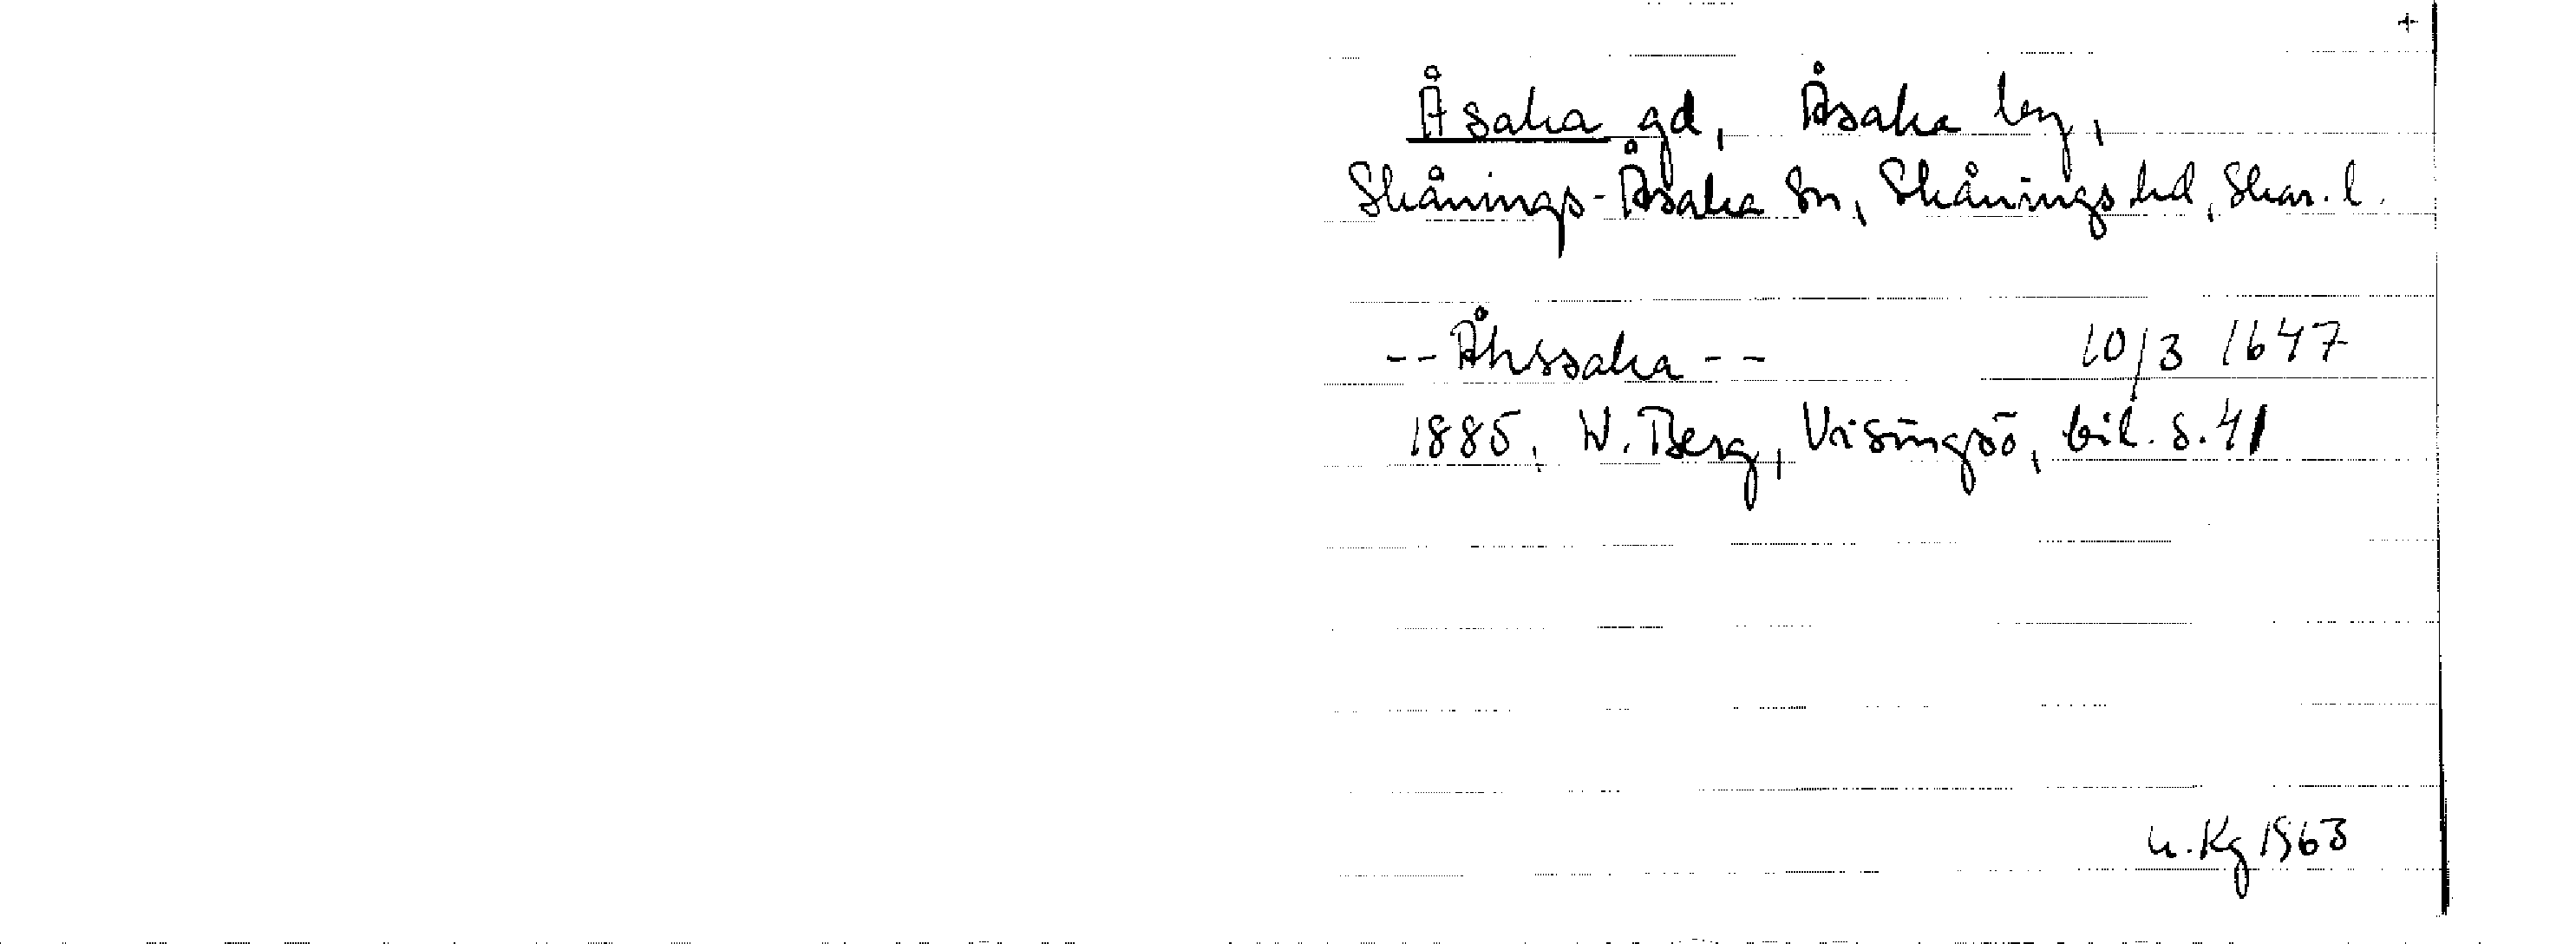 +
Åsaka gd, Åsaka by,
Skånings-Åsaka sn, Skånings hd, Skar. l.
-- Åhssaka -- 10/3 1647
1885, W. Berg, Visingsö, bil. s. 41
u. Kg 1963